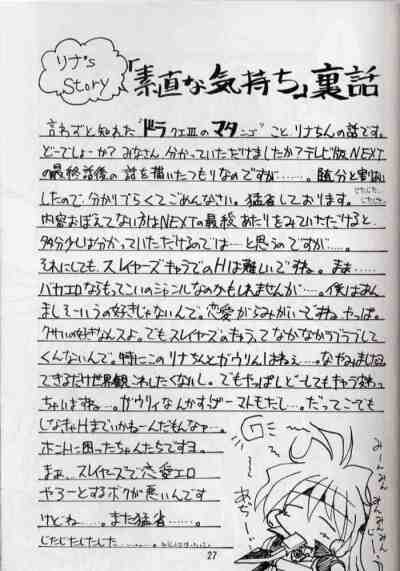 リナ's Story
「素直な気持ち」裏話
言わずと知れた"ドラクエⅢのマタンゴ"ことリナちんの話です。
どーでしょーか?みなさん分かっていただけましたか?テレビ版NEXT
の最終話後の話を描いたつもりなのですが……。随分と
したので、分かりづらくてごめんなさい。猛省しております。
じたじた…
内容おぼえてない方はNEXTの最終あたりをみていただけると、
多分少しは分かっていただけるのでは…と思うのですが……。
それにしても、スレイヤーズキャラでのHは難しいですね。まぁ……
バカエロならもってこいのジャンルなのかもしれませんが……。僕はあん
ましそーいうの好きじゃないんで。恋愛がらみがいいですね、やっぱ。
クサいの好きなんスよ。でもスレイヤーズのキャラってなかなかラブラブして
くんないんで。特にこのリナちんとガウリイはねぇ……。なやみました。
できるだけ世界観こわしたくないし。でもやっぱしどーしてもキャラ変わっ
ちゃいますね…。ガウリイなんかすでに…。だってこーでも
しなきゃHまでいかねーんだもんなァー。
ホントに困ったちゃんたちですヨ。
まぁ、スレイヤーズで恋愛エロ
やろーとするボクが悪いんです
けどね……。また猛省……。
じたじたじたじた……。
みーんみーん
みんみんみーん
あぢー
27